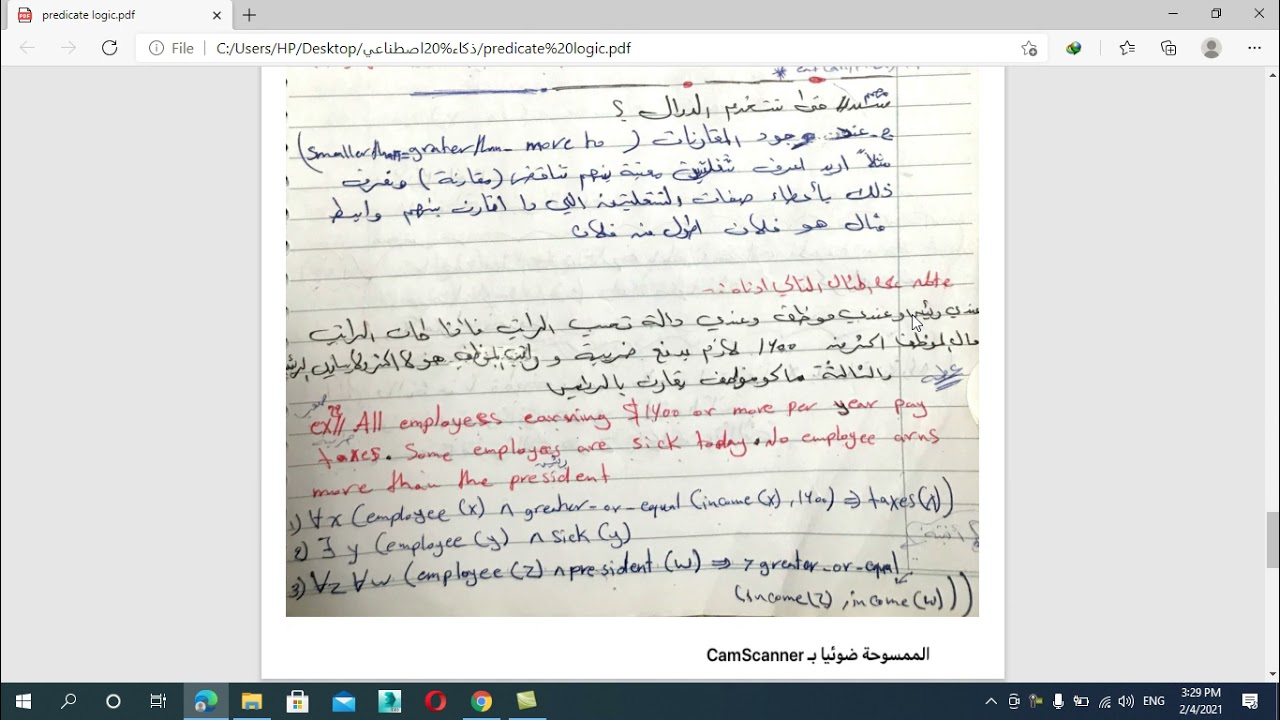 predicate logic.pdf
File C:/Users/HP/Desktop/ذكاء%20اصطناعي/predicate%20logic.pdf
متى نستخدم الدوال ؟
ج- عند وجود المقارنات (smaller than = grather than - more to)
مثلاً اريد اعرف شغلتين معينة بينهم تناقض (مقارنة) ونعرف
ذلك بأعطاء صفات والشغلتين التي ما اقارن بينهم وابسط
مثال هو فلان اطول من فلان
note على المثال التالي ادناه :-
عندي رئيس وعندي موظف وعندي دالة تحسب الراتب فاذا كان الراتب
مال الموظف اكثر من 1400 لازم يدفع ضريبة و راتب الموظف هو لا اكثر ولا يساوي الرئيس
والثالثة ماكو موظف يقارن بالرئيس
ex// All employees earning $1400 or more per year pay
ضريبة
taxes. Some employees are sick today. No employee arns
رئيس
more than the president
1) ∀x (employee (x) ∧ greater-or-equal (income(x), 1400) ⇒ taxes(x))
2) ∃ y (employee (y) ∧ sick (y)
3) ∀z ∀w (employee (z) ∧ president (w) ⇒ ¬ greater-or-equal
(income(z), income(w)))
الممسوحة ضوئيا بـ CamScanner
ENG
3:29 PM
2/4/2021